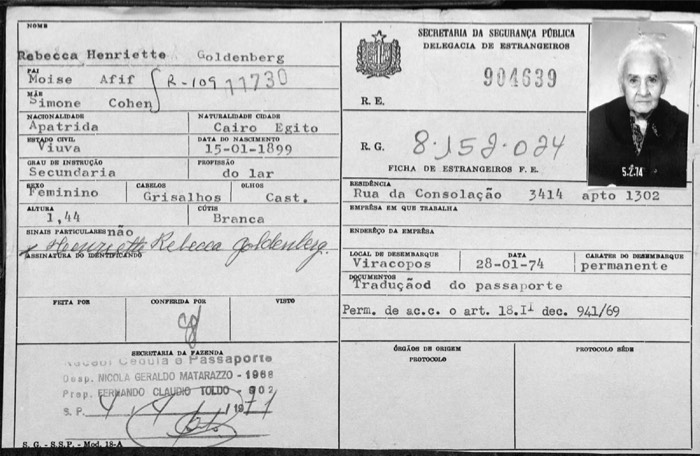 NOME
Rebecca Henriette Goldenberg
PAI
Moise Afif
R-109 11730
MÃE
Simone Cohen
NACIONALIDADE NATURALIDADE CIDADE
Apatrida Cairo Egito
ESTADO CIVIL DATA DO NASCIMENTO
Viuva 15-01-1899
GRAU DE INSTRUÇÃO PROFISSÃO
Secundaria do lar
SEXO CABELOS OLHOS
Feminino Grisalhos Cast.
ALTURA CÚTIS
1,44 Branca
SINAIS PARTICULARES não
x Henriette Rebecca Goldenberg.
ASSINATURA DO IDENTIFICANDO
FEITA POR CONFERIDA POR VISTO
SECRETARIA DA FAZENDA
Recebi Cédula e Passaporte
Desp. NICOLA GERALDO MATARAZZO - 1968
Prep. FERNANDO CLAUDIO TOLDO - 902
S. P.
S. G. - S.S.P. - Mod. 18-A
SECRETARIA DA SEGURANÇA PÚBLICA
DELEGACIA DE ESTRANGEIROS
904639
R. E.
R. G. 8.152.024
FICHA DE ESTRANGEIROS F. E.
5.2.74
RESIDÊNCIA
Rua da Consolação 3414 apto 1302
EMPRÊSA EM QUE TRABALHA
ENDERÊÇO DA EMPRÊSA
LOCAL DE DESEMBARQUE DATA CARATER DO DESEMBARQUE
Viracopos 28-01-74 permanente
DOCUMENTOS
Traduçãod do passaporte
Perm. de ac.c. o art. 18.II dec. 941/69
ÓRGÃOS DE ORIGEM PROTOCOLO SÉDE
PROTOCOLO